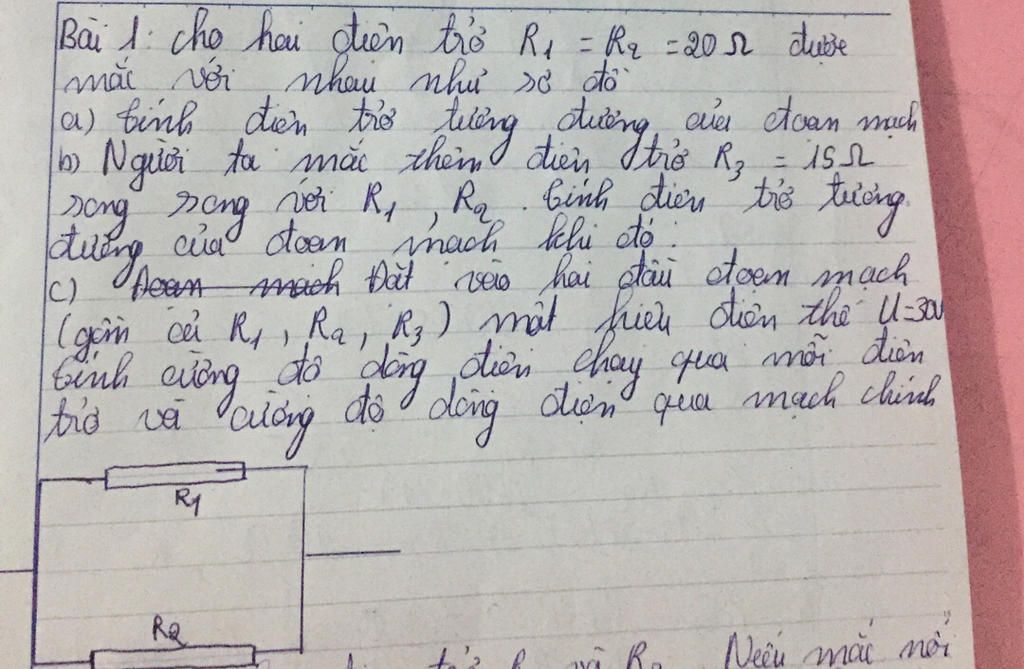 Bài 1: cho hai điện trở R1 = R2 = 20 Ω được
mắc với nhau như sơ đồ
a) tính điện trở tương đương của đoạn mạch
b) Người ta mắc thêm điện trở R3 = 15 Ω
song song với R1, R2. tính điện trở tương
đương của đoạn mạch khi đó.
c) Đoạn mạch Đặt vào hai đầu đoạn mạch
(gồm cả R1, R2, R3) một hiệu điện thế U=30V
tính cường độ dòng điện chạy qua mỗi điện
trở và cường độ dòng điện qua mạch chính
R1
R2
trở R và R Nếu mắc nối